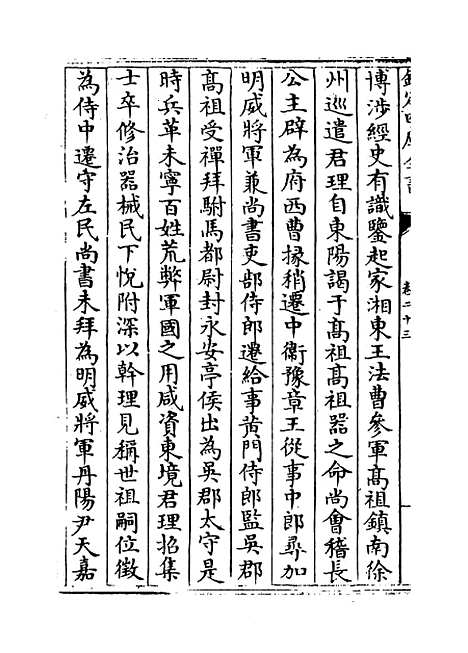 欽定四庫全書
卷二十三
博涉經史有識鑒起家湘東王法曹參軍髙祖鎮南徐
州巡遣君理自東陽謁于髙祖髙祖器之命尚會稽長
公主辟為府西曹掾稍遷中衞豫章王從事中郎尋加
明威將軍兼尚書吏部侍郎遷給事黄門侍郎監吳郡
髙祖受禪拜駙馬都尉封永安亭侯出為吳郡太守是
時兵革未寧百姓荒弊軍國之用咸資東境君理招集
士卒修治器械民下悅附深以幹理見稱世祖嗣位徵
為侍中遷守左民尚書未拜為明威將軍丹陽尹天嘉